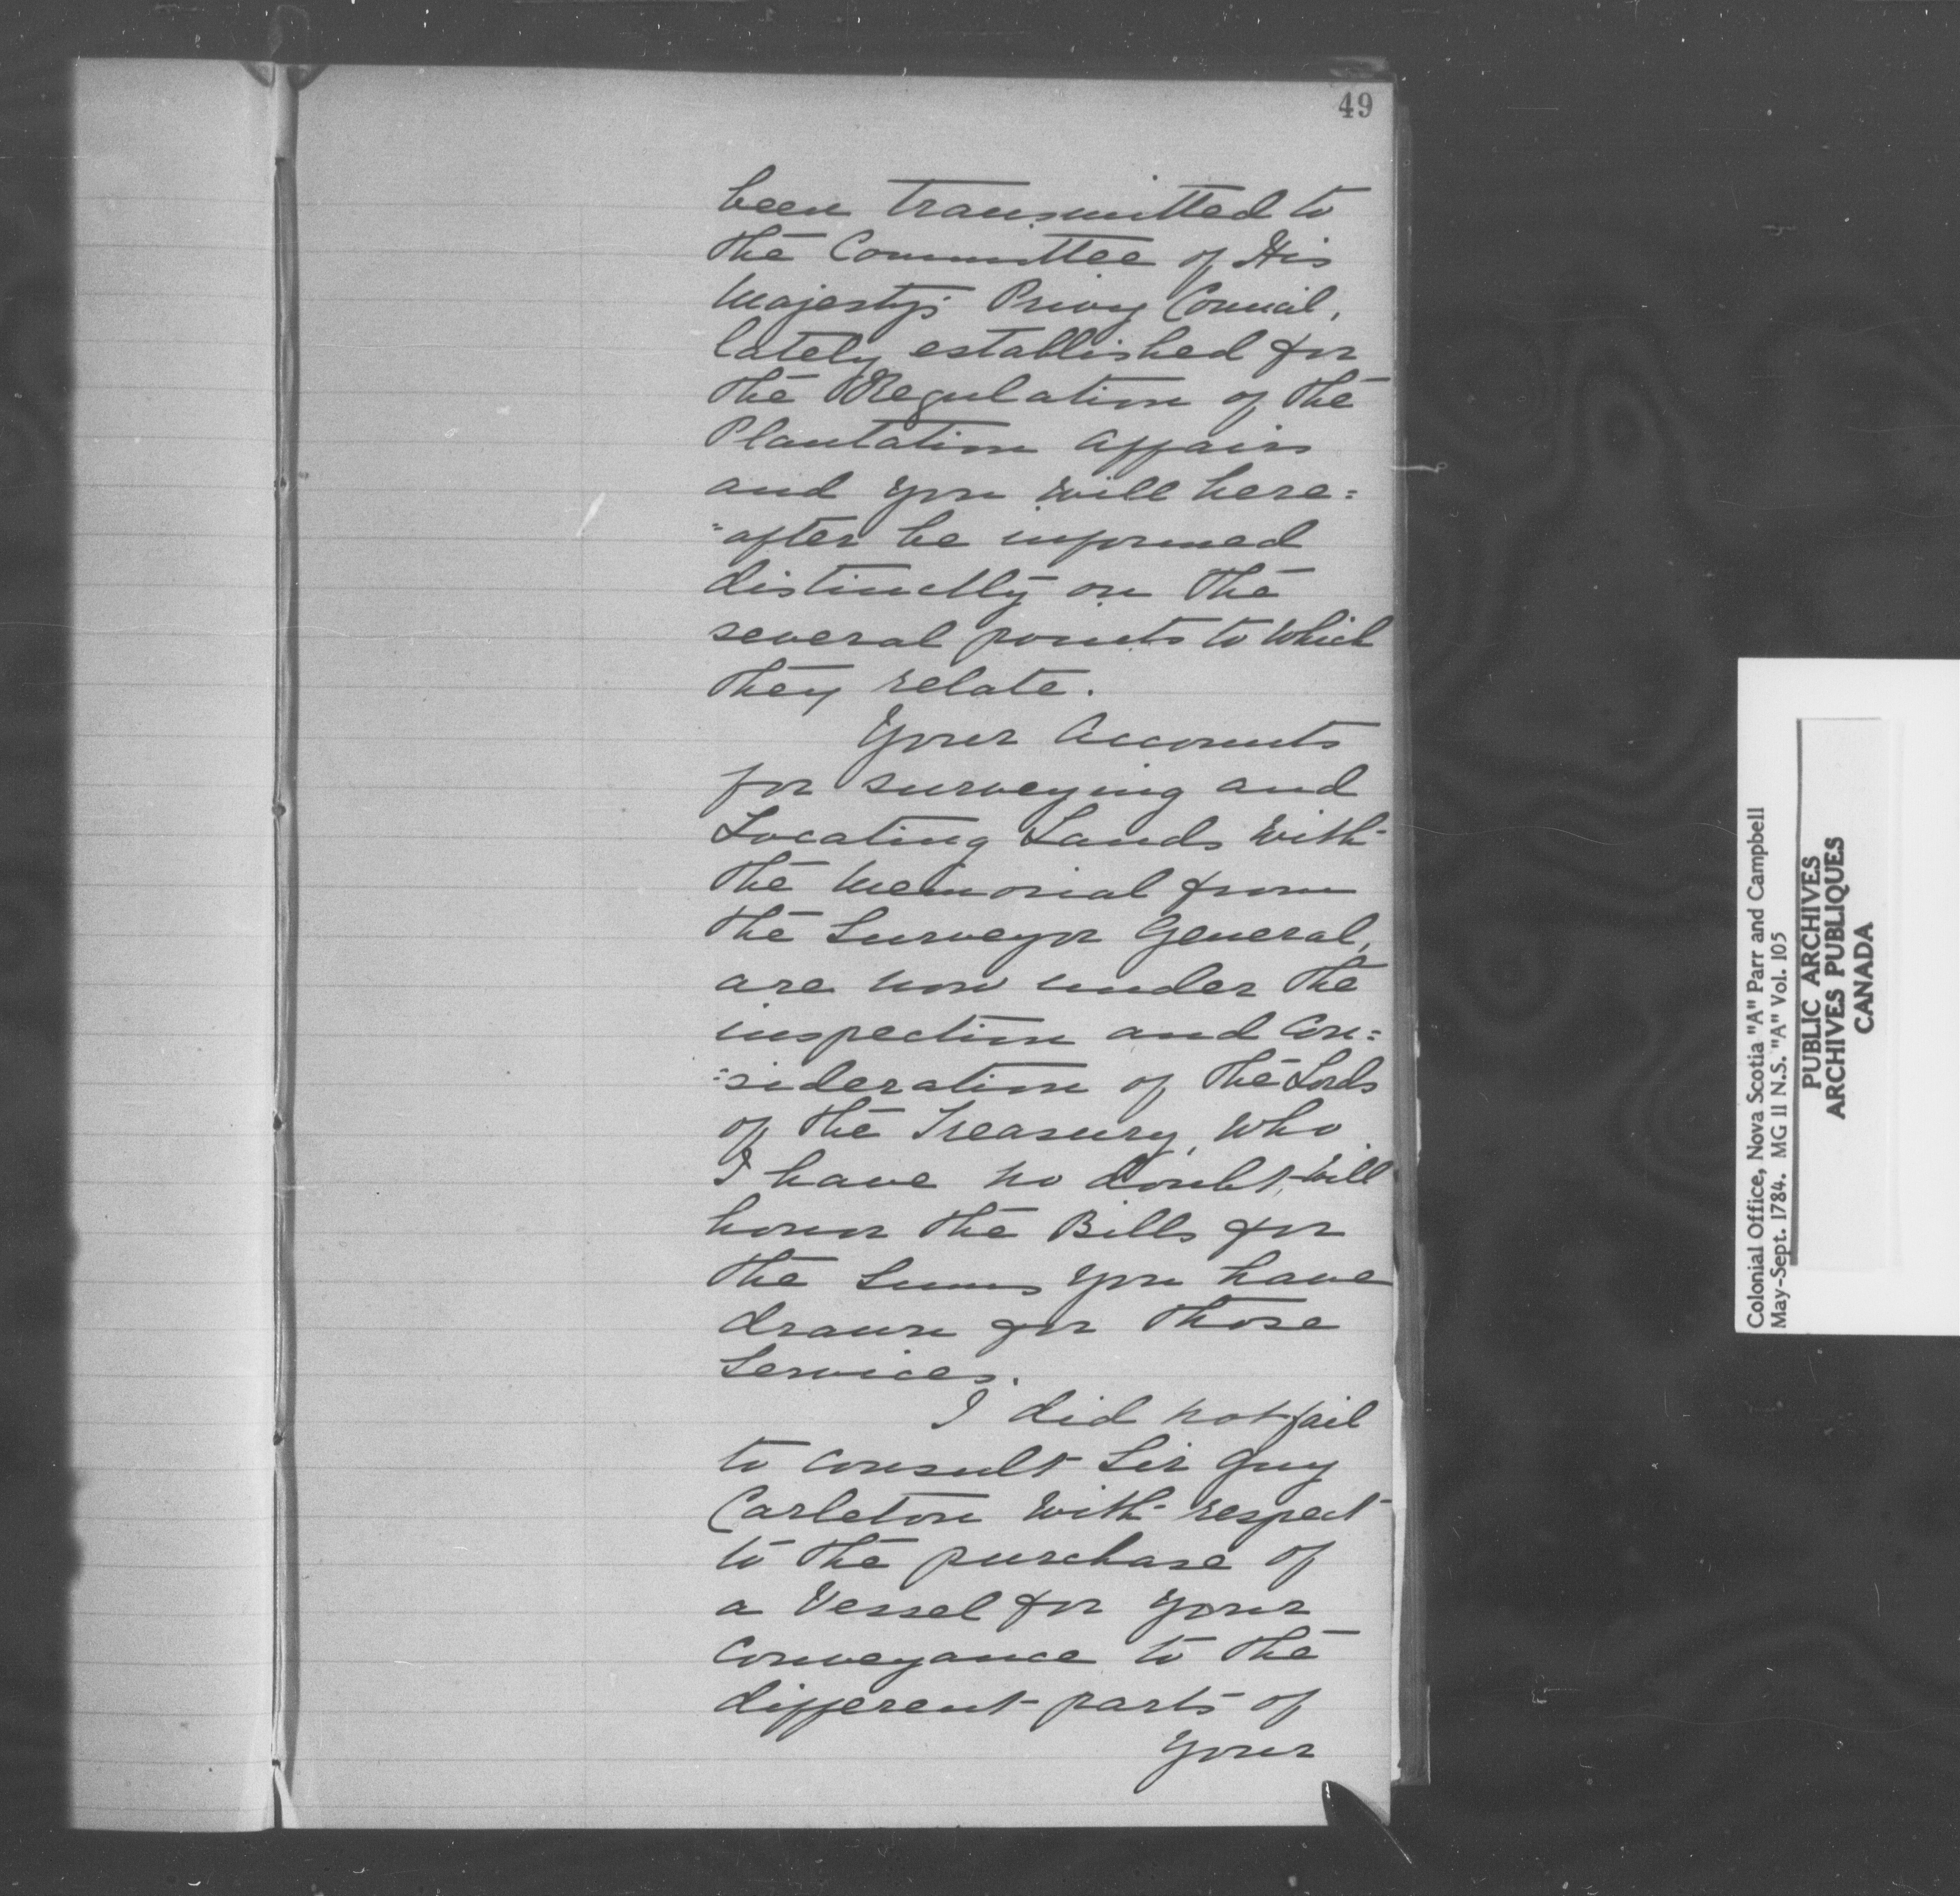 49
been transmitted to
the Committee of His
Majesty's Privy Council,
lately established for
the Regulation of the
Plantation Affairs
and you will here=
=after be informed
distinctly on the
several points to which
they relate.
Your Accounts
for surveying and
Locating Lands with
the Memorial from
the Surveyor General,
are now under the
inspection and Con=
=sideration of the Lords
of the Treasury, who
I have no doubt, will
honor the Bills for
the Sums you have
drawn for those
Services.
I did not fail
to consult Sir Guy
Carleton with respect
to the purchase of
a Vessel for your
conveyance to the
different parts of
your
Colonial Office, Nova Scotia "A" Parr and Campbell
May-Sept. 1784. MG 11 N.S. "A" Vol. 105
PUBLIC ARCHIVES
ARCHIVES PUBLIQUES
CANADA